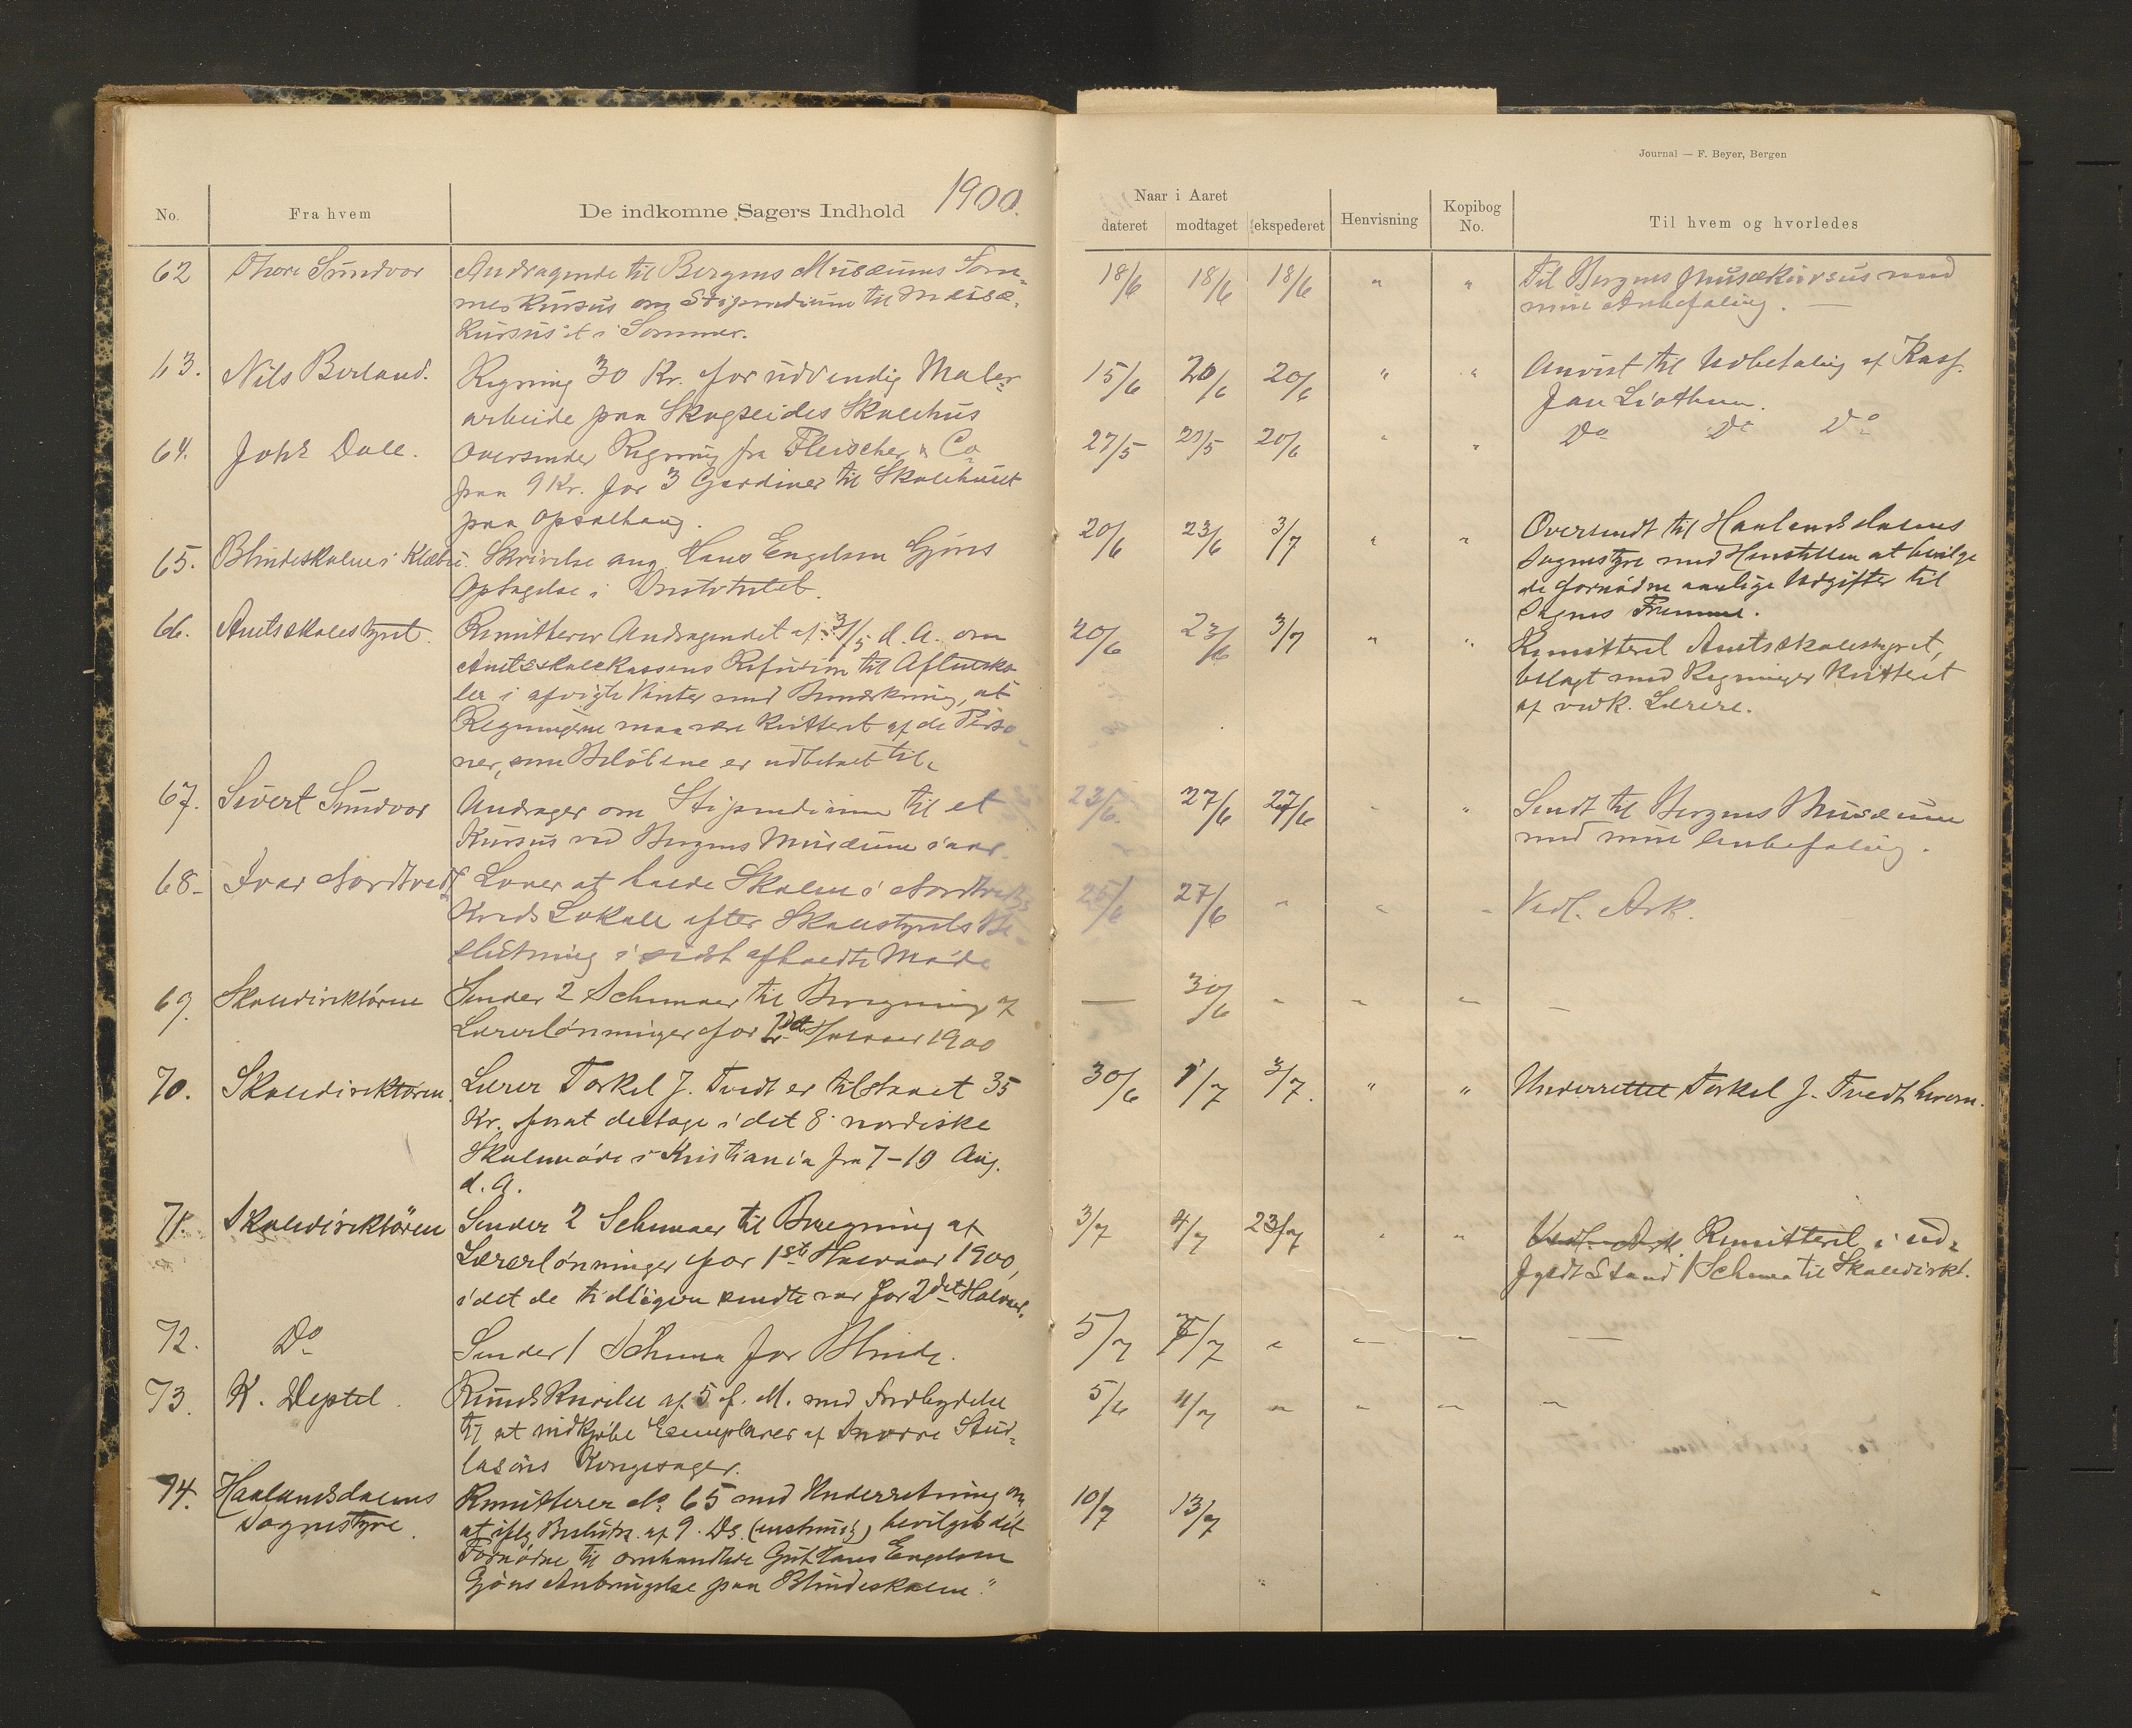 1900.
No.
Fra hvem
De indkomne Sagers Indhold
62
Thore Sundvor
Andragende til Bergens Musæums Som-
merkursus om Stipendium til Musæ-
kursus'et i Sommer.
63.
Nils Borland.
Regning 30 Kr. for udvendig Maler-
arbeide paa Skogseides Skolehus
64.
Johs Dale.
Oversender Regning fra Fleischer & Co
paa 9 Kr. for 3 Gardiner til Skolehuset
paa Opsalhaug.
65.
Blindeskolen i Klæbu.
Skrivelse ang. Hans Engelsen Gjøns
Optagelse i Institutet.
66.
Amtsskolestyret.
Remitterer Andragendet af 3/5 d. A. om
Amtsskolekassens Refusion til Aftensko-
ler i afvigte Vinter med Bemærkning, at
Regningerne maa være kvitteret af de Perso-
ner, som Beløbene er udbetalt til.
67.
Sivert Sundvor
Andrager om Stipendium til et
Kursus ved Bergens Musæum iaar.
68-
Ivar Nordtvedt
Lover at holde Skolen i Nordtvedts
Kreds Lokale efter Skolestyrets Be-
slutning i sidst afholdte Møde
69.
Skoledirektøren
Sender 2 Schemaer til Beregning af
Lærerlønninger for Halvaar 1900
70.
Skoledirektøren.
Lærer Torkel J. Tvedt er tilstaaet 35
Kr. forat deltage i det 8. nordiske
Skolemøde i Kristiania fra 7-10 Aug.
d. A.
71.
Skoledirektören
Sender 2 Schemaer til Beregning af
Lærerlønninger for 1ste Halvaar 1900,
idet de tidligere sendte var for 2det Halvaar.
72.
Do
Sender 1 Schema for Blinde.
73.
K. Deptel.
Rundskrivelse af 5 f. M. med Indbydelse
til at indkjøbe Exemplarer af Snorre Stur-
lasöns Kongesager.
74.
Haalandsdalens
Sognestyre.
Remitterer No 65 med Underretning om,
at iflg. Beslutn. af 9. Ds. bevilget det
Fornødne til omhandlede Gut Hans Engelsen
Gjøns Anbringelse paa Blindeskolen."
Journal — F. Beyer, Bergen
Naar i Aaret
dateret
modtaget
ekspederet
Henvisning
Kopibog
No.
Til hvem og hvorledes
18/6 18/6 18/6 " "
Til Bergens Musækursus med
min Anbefaling. —
15/6 20/6 20/6 " "
Anvist til Udbetaling af Kass.
Jan Liothun.
27/5 29/5 20/6 " "
Do Do Do
20/6 23/6 3/7 " "
Oversendt til Haalandsdalens
Sognestyre med Henstillen at bevilge
de fornødne aarlige Udgifter til
Sagens Fremme.
20/6 23/6 3/7 " "
Remitteret Amtsskolestyret,
belagt med Regninger kvitteret
af vedk. Lærere.
23/6. 27/6 27/6 " "
Sendt til Bergens Musæum
med min Anbefaling.
25/6 27/6 " " "
Vedl. Ark.
— 30/6 " " " —
30/6 1/7 3/7. " "
Underrettet Torkel J. Tvedt herom.
3/7 4/7 23/7 " "
Vedl. Ark. Remitteret i ud-
fyldt Stand 1 Schema til Skoledirkt.
5/7 7/7 " — — —
5/6 4/7 " " " "
10/7 13/7